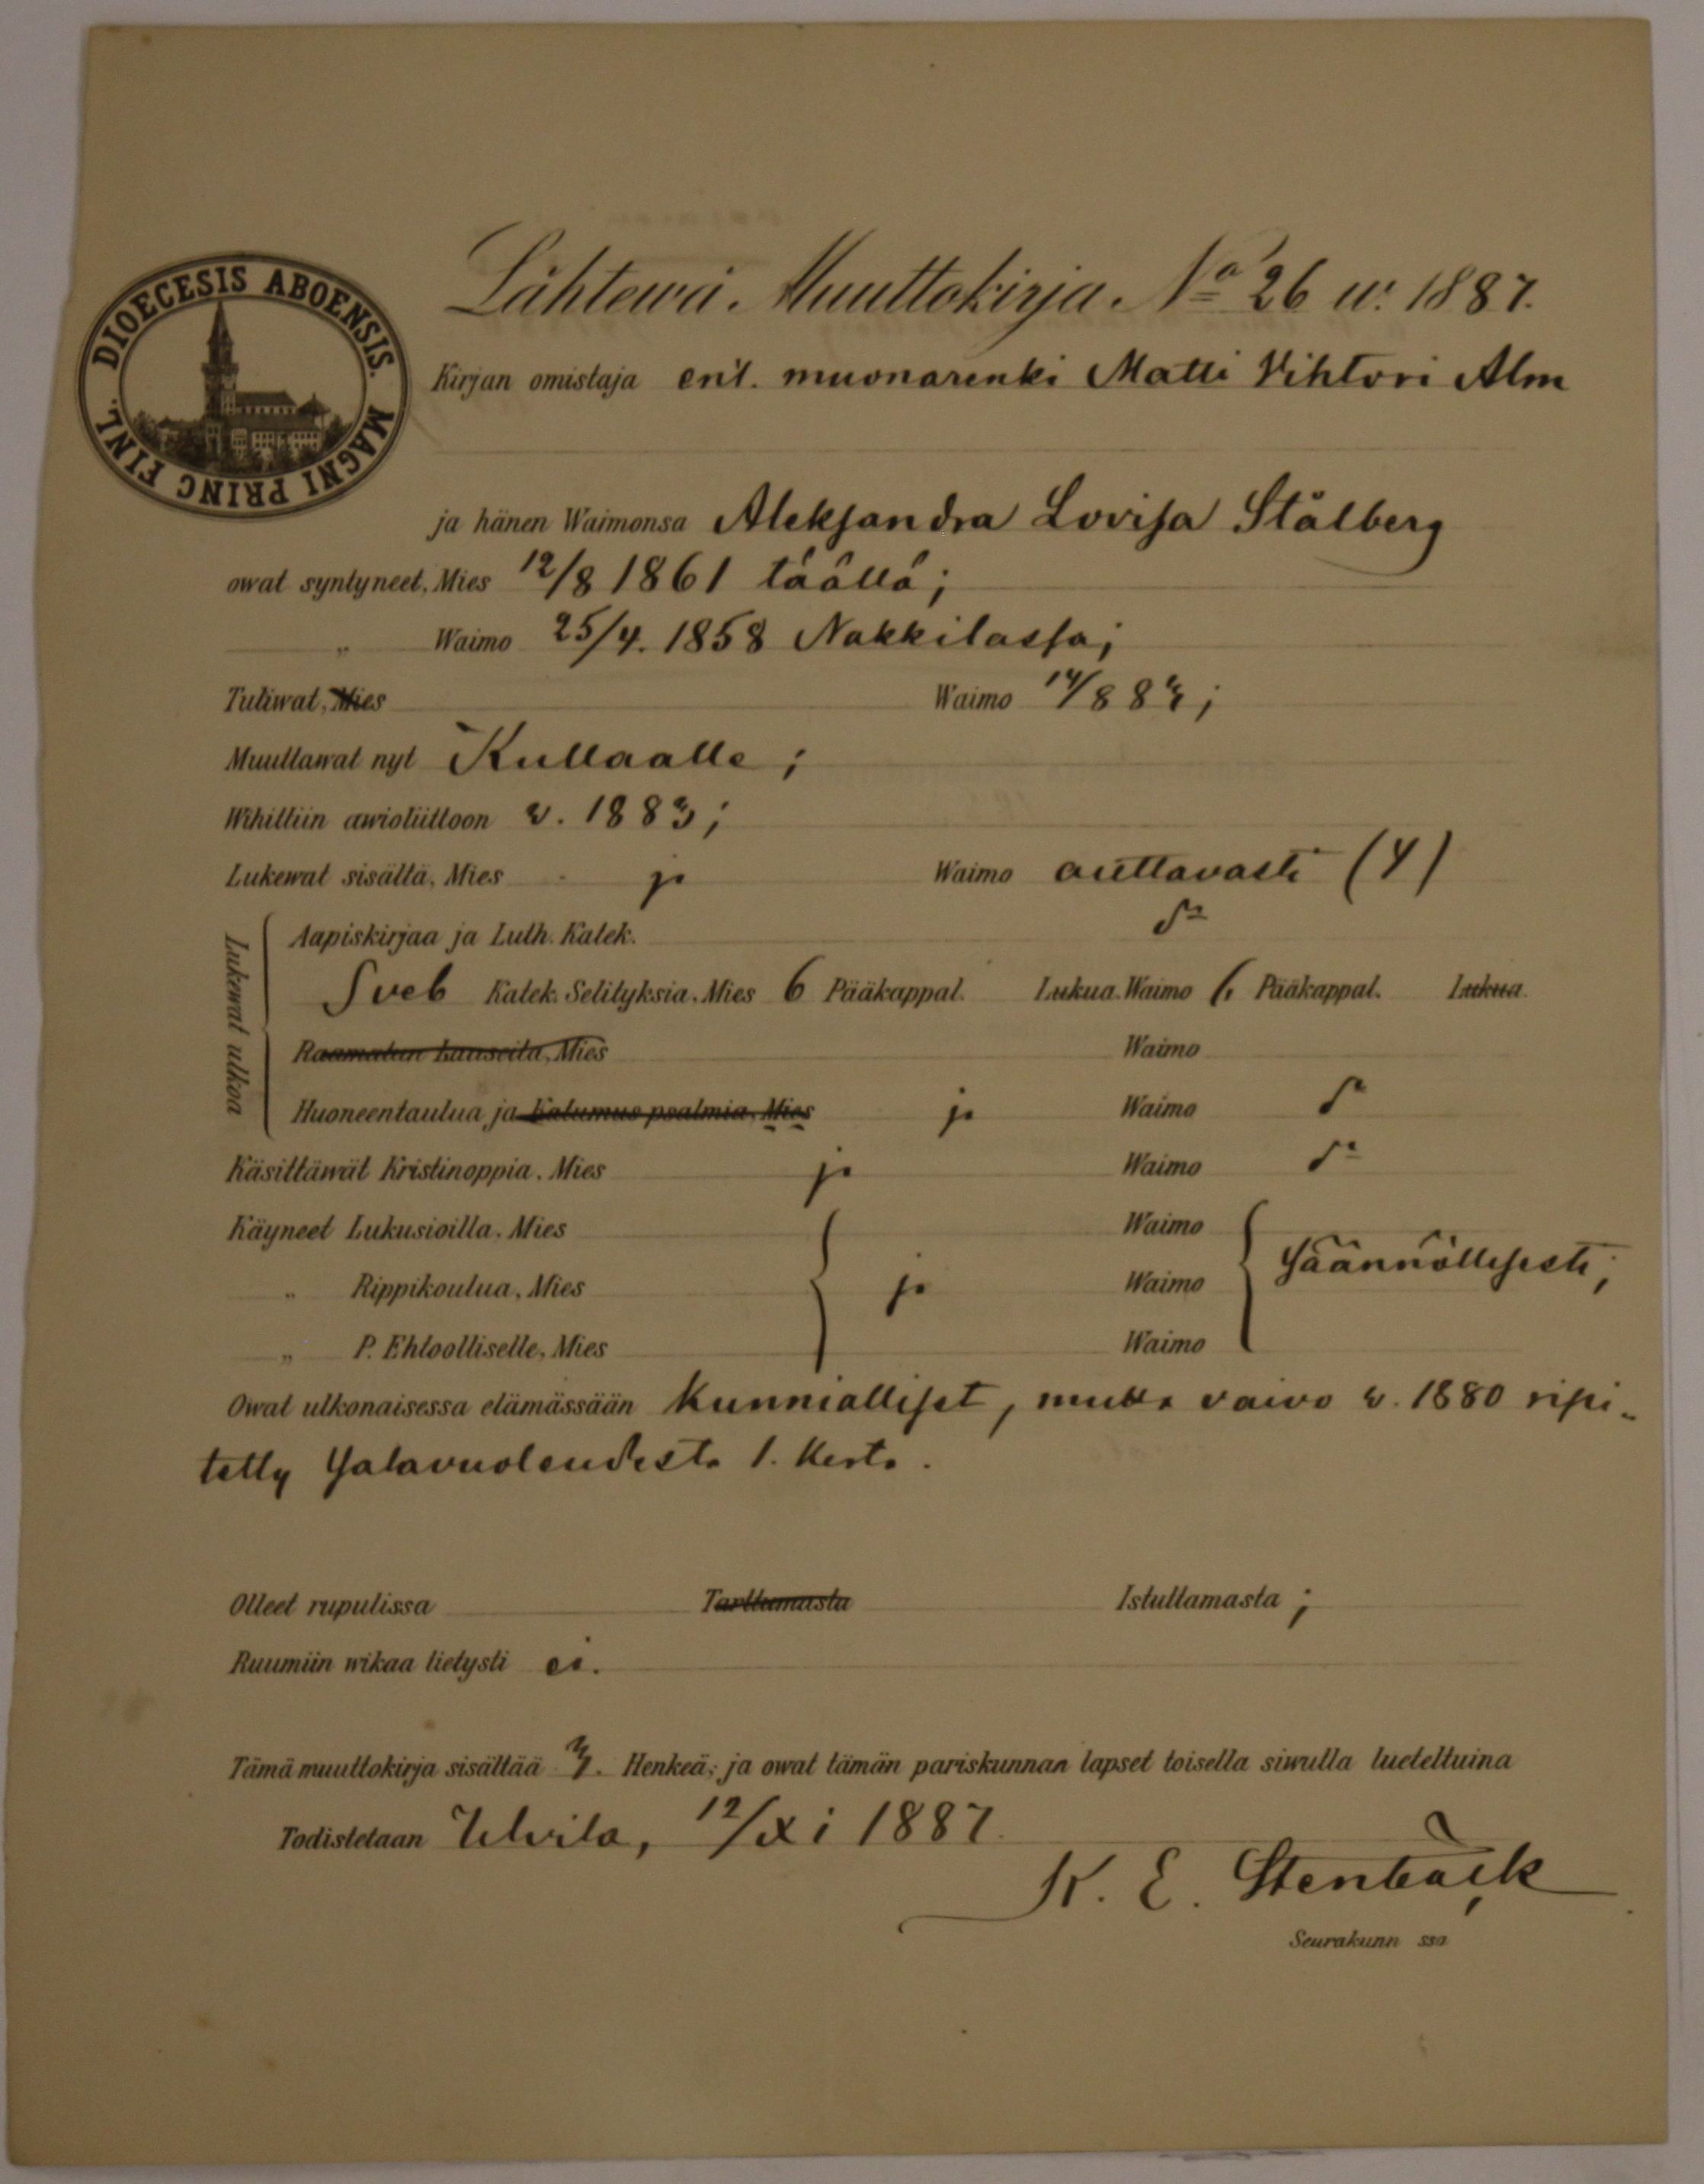 DIOECESIS ABOENSIS. MAGNI PRINC FINL.
Lähtewä Muuttokirja No 26 w. 1887.
Kirjan omistaja ent. muonarenki Matti Vihtori Alm
ja hänen Waimonsa Aleksandra Lovisa Stålberg
owat syntyneet, Mies 12/8 1861 täällä;
„ Waimo 25/4. 1858 Nakkilassa;
Tuliwat, Mies Waimo 14/8 83;
Muuttawat nyt Kullaalle;
Wihittiin awioliittoon v. 1883;
Lukewat sisältä, Mies ja Waimo auttavasti (4)
Lukewat ulkoa
Aapiskirjaa ja Luth. Katek.
Sveb Katek. Selityksiä, Mies 6 Pääkappal. Lukua. Waimo 6 Pääkappal. Lukua.
Raamatun Lauseita, Mies Waimo
Huoneentaulua ja Katumus psalmia, Mies ja Waimo
Käsittäwät Kristinoppia, Mies ja Waimo
Käyneet Lukusioilla, Mies Waimo
„ Rippikoulua, Mies ja Waimo säännöllisesti;
„ P. Ehtoolliselle, Mies Waimo
Owat ulkonaisessa elämässään Kunnialliset, mutta vaivo v. 1880 ripi-
tetty salavuoteudesta 1. kerta.
Olleet rupulissa Tarttumasta Istuttamasta;
Ruumiin wikaa tietysti ei.
Tämä muuttokirja sisältää Henkeä; ja owat tämän pariskunnan lapset toisella siwulla lueteltuina
Todistetaan Ulvila, 12/XI 1887.
K. E. Stenbäck
Seurakunn ssa